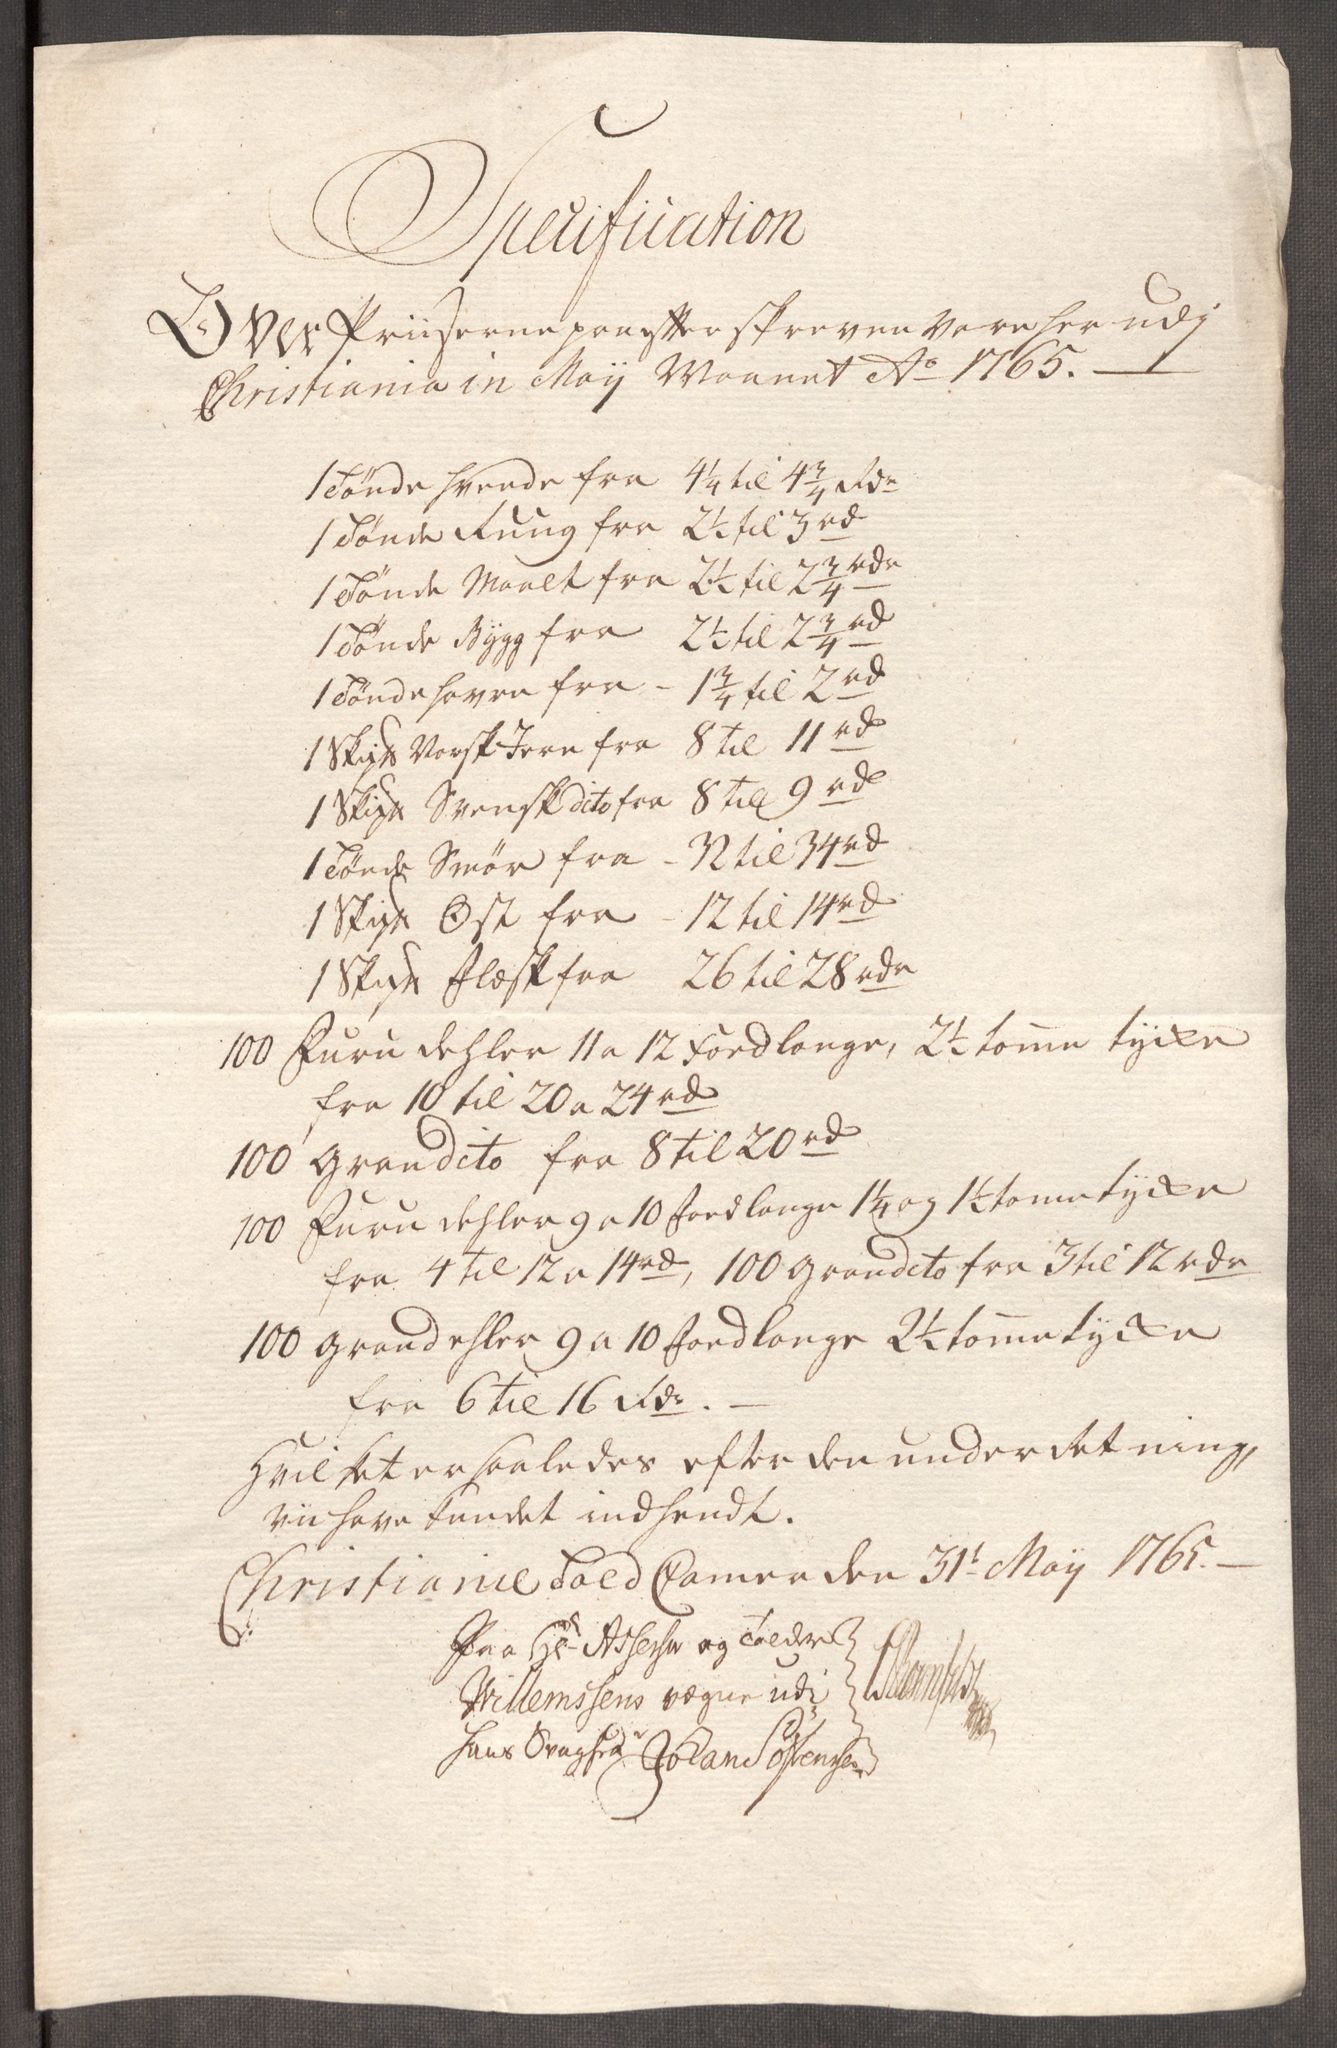 Specification
Over Priiserne paa efterskrevne Vare her udj
Christiania in Maij Maanet Ao 1765.
1 Tønde Hvede fra 4 1/4 til 4 3/4 Rdr
1 Tønde Rung fra 2 1/2 til 3 rd
1 Tønde Maalt fra 2 1/2 til 2 3/4 rdr
1 Tønde Bygg fra 2 1/2 til 2 3/4 rd
1 Tønde Havre fra - 1 3/4 til 2 rd
1 Skip Norsk Jern fra 8 til 11 rd
1 Skip Svensk dito fra 8 til 9 rd
1 Tønde Smør fra - 32 til 34 rd
1 Skip Ost fra - 12 til 14 rd
1 Skip Flæsk fra 26 til 28 rdr
100 Furu dehler 11 a 12 Foed lange, 2 1/2 tomme tycke
fra 10 til 20 a 24 rd
100 Gran dito fra 8 til 20 rd
100 Furu dehler 9 a 10 Foed lange 1 1/4 og 1 1/2 tomme tycke
fra 4 til 12 a 14 rd, 100 Gran dito fra 3 til 12 rdr
100 Gran dehler 9 a 10 Foed lange 2 1/2 tomme tycke
fra 6 til 16 Rdr.
Hvilket er saaledes efter den underretning,
vii have kundet indhendt.
Christianiæ Told Camer den 31t Maij 1765.
Paa Hr Assessr og Tolder
Willemssens vægne udi
hans Svaghed Johan Sørenssen